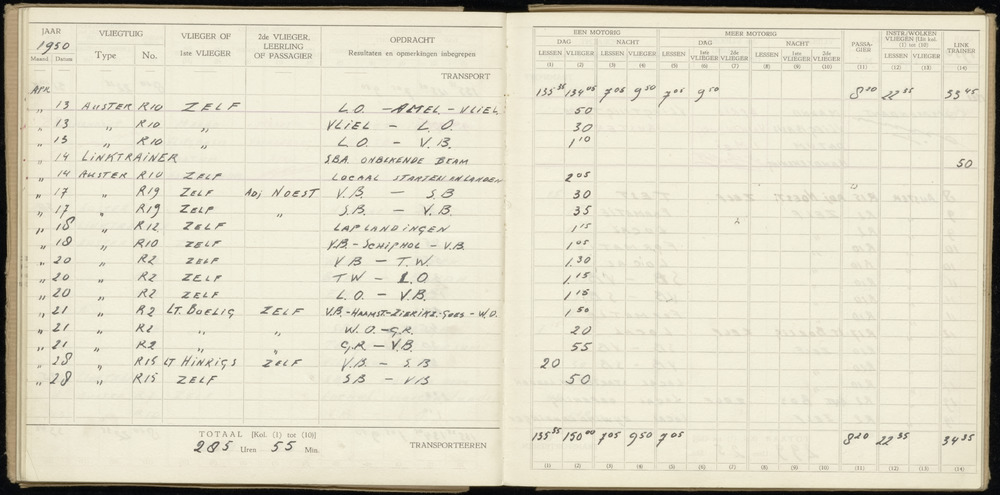 JAAR VLIEGTUIG VLIEGER OF 1ste VLIEGER 2de VLIEGER, LEERLING OF PASSAGIER OPDRACHT Resultaten en opmerkingen inbegrepen
1950
Maand Datum Type No.
TRANSPORT
APR.
" 13 AUSTER R10 ZELF L.O. - AMEL. - VLIEL.
" 13 " R10 " VLIEL - L.O.
" 13 " R10 " L.O. - V.B.
" 14 LINKTRAINER SBA. ONBEKENDE BEAM
" 14 AUSTER R10 ZELF LOCAAL STARTEN EN LANDEN
" 17 " R19 ZELF ADJ NOEST V.B. - S.B
" 17 " R19 ZELF " S.B. - V.B.
" 18 " R12 ZELF LAPLANDINGEN
" 18 " R10 ZELF V.B. - SCHIPHOL - V.B.
" 20 " R2 ZELF V.B - T.W.
" 20 " R2 ZELF T W - L.O.
" 20 " R2 ZELF L.O. - V.B.
" 21 " R2 ZELF V.B.-HAAMST-ZIERIKZ.-GOES - W.D.
" 21 " R2 " " W.O. - G.R.
" 21 " R2 " " G.R. - V.B.
" 28 " R15 ZELF V.B. - S.B
" 28 " R15 ZELF S B - V B
TOTAAL [Kol. (1) tot (10)] TRANSPORTEEREN
285 Uren 55 Min.
EEN MOTORIG MEER MOTORIG PASSA-GIER INSTR/WOLKEN VLIEGEN [Uit kol. (1) tot (10)] LINK TRAINER
DAG NACHT DAG NACHT
LESSEN VLIEGER LESSEN VLIEGER LESSEN 1ste VLIEGER 2de VLIEGER LESSEN 1ste VLIEGER 2de VLIEGER LESSEN VLIEGER
(1) (2) (3) (4) (5) (6) (7) (8) (9) (10) (11) (12) (13) (14)
135 35 134 05 7 05 9 50 7 05 9 50 8 20 22 35 33 45
50
30
1 10
50
2 05
30
35
1 15
1 05
1.30
1 15
1 15
1 50
20
55
20
50
135 55 150 00 7 05 9 50 7 05 8 20 22 35 34 35
(1) (2) (3) (4) (5) (6) (7) (8) (9) (10) (11) (12) (13) (14)